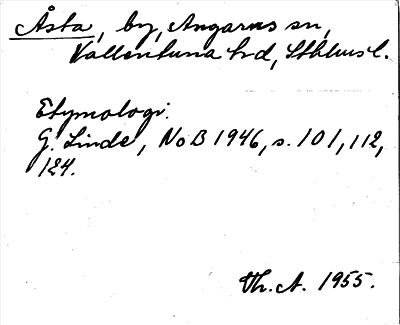 Åsta, by, Angarns sn,
Vallentuna hd, Sthlms l.
Etymologi:
G. Linde, NoB 1946, s. 101, 112,
124.
Th. A. 1955.